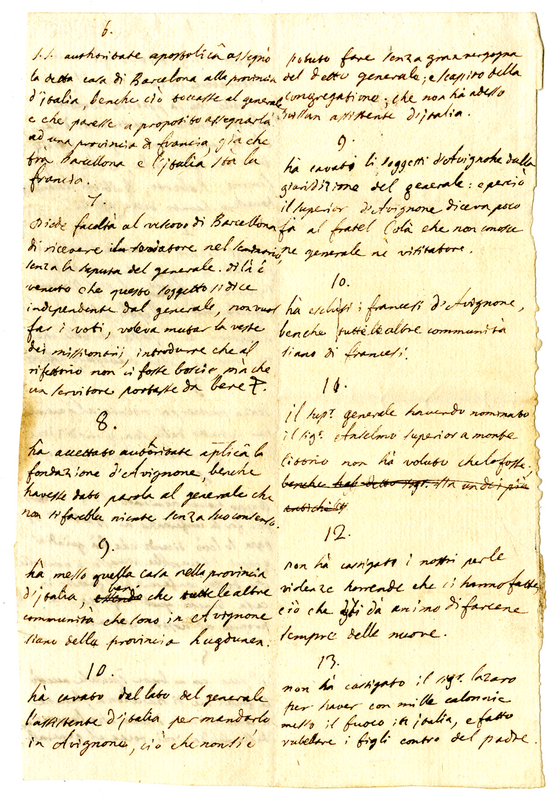 6.
S.S. authoritate apostolicâ assegnò
la detta casa di Barcelona alla provincia
d'italia, benche ciò toccasse al generale
e che paresse a proposito assegnarla
ad una provincia di francia, già che
tra Barcellona e l'italia sta la
francia.
7.
Diede facoltà al vescovo di Barcellona
di ricevere il fondatore nel seminario
senza la saputa del generale. di là è
venuto che questo soggetto si dice
independente dal generale, non vuol
far i voti, voleva mutar la veste
dei missionarij, introdurre che al
rifettorio non ci fosse boccio, ma che
un servitore portasse da bere &.
8.
ha accettato autoritate aplicâ la
fondazione d'Avignone, benche
havesse dato parola al generale che
non si farebbe niente senza suo consenso.
9.
ha messo questa casa nella provincia
d'italia, che tutte le altre
communità che sono in Avignone
siano della provincia Lugdunen.
10.
ha cavato dal lato del generale
l'assistente d'italia per mandarlo
in Avignone, ciò che non si è
potuto fare senza gran vergogna
del detto generale, e scapito della
congregatione, che non ha adesso
nissun assistente d'italia.
9.
ha cavato li soggetti d'Avignone dalla
giurisdizione del generale: e perciò
il superior d'Avignone diceva poco
fà al fratel Colà che non conosce
ne generale nè visitatore.
10.
ha esclusi i francesi d'Avignone,
benche tutte le altre communità
siano di francesi.
11.
il supr. generale havendo nominato
il sigr. Anselmo superior a monte
Citorio non ha voluto che lo fosse.
benche detto sigr. sia un dei più
antichi
12.
non ha castigato i nostri per le
violenze horrende che ci hanno fatte
ciò che dà animo di farcene
sempre delle nuove.
13.
non hà castigato il sigr. lazaro
per haver con mille calonnie
messo il fuoco in italia, e fatto
rubellare i figli contro del padre.